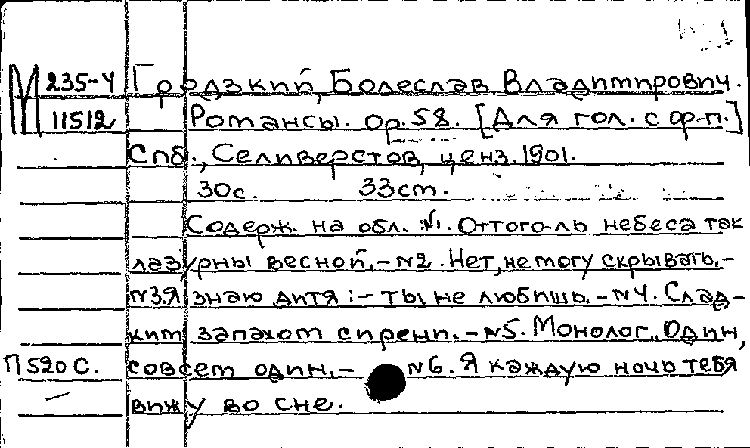 М 235-4 Гродзкий, Болеслав Владимирович.
11512 Романсы. op.58. [Для гол. с ф-п.]
Спб., Селиверстов, ценз. 1901.
30с. 33cm.
Содерж. на обл. №1. Оттого-ль небеса так
лазурны весной.-№2. Нет, не могу скрывать.-
№3. Я знаю дитя:- ты не любишь.-№4. Слад-
ким запахом сирени.-№5. Монолог. Один,
П520С. совсем один.- №6. Я каждую ночь тебя
вижу во сне.